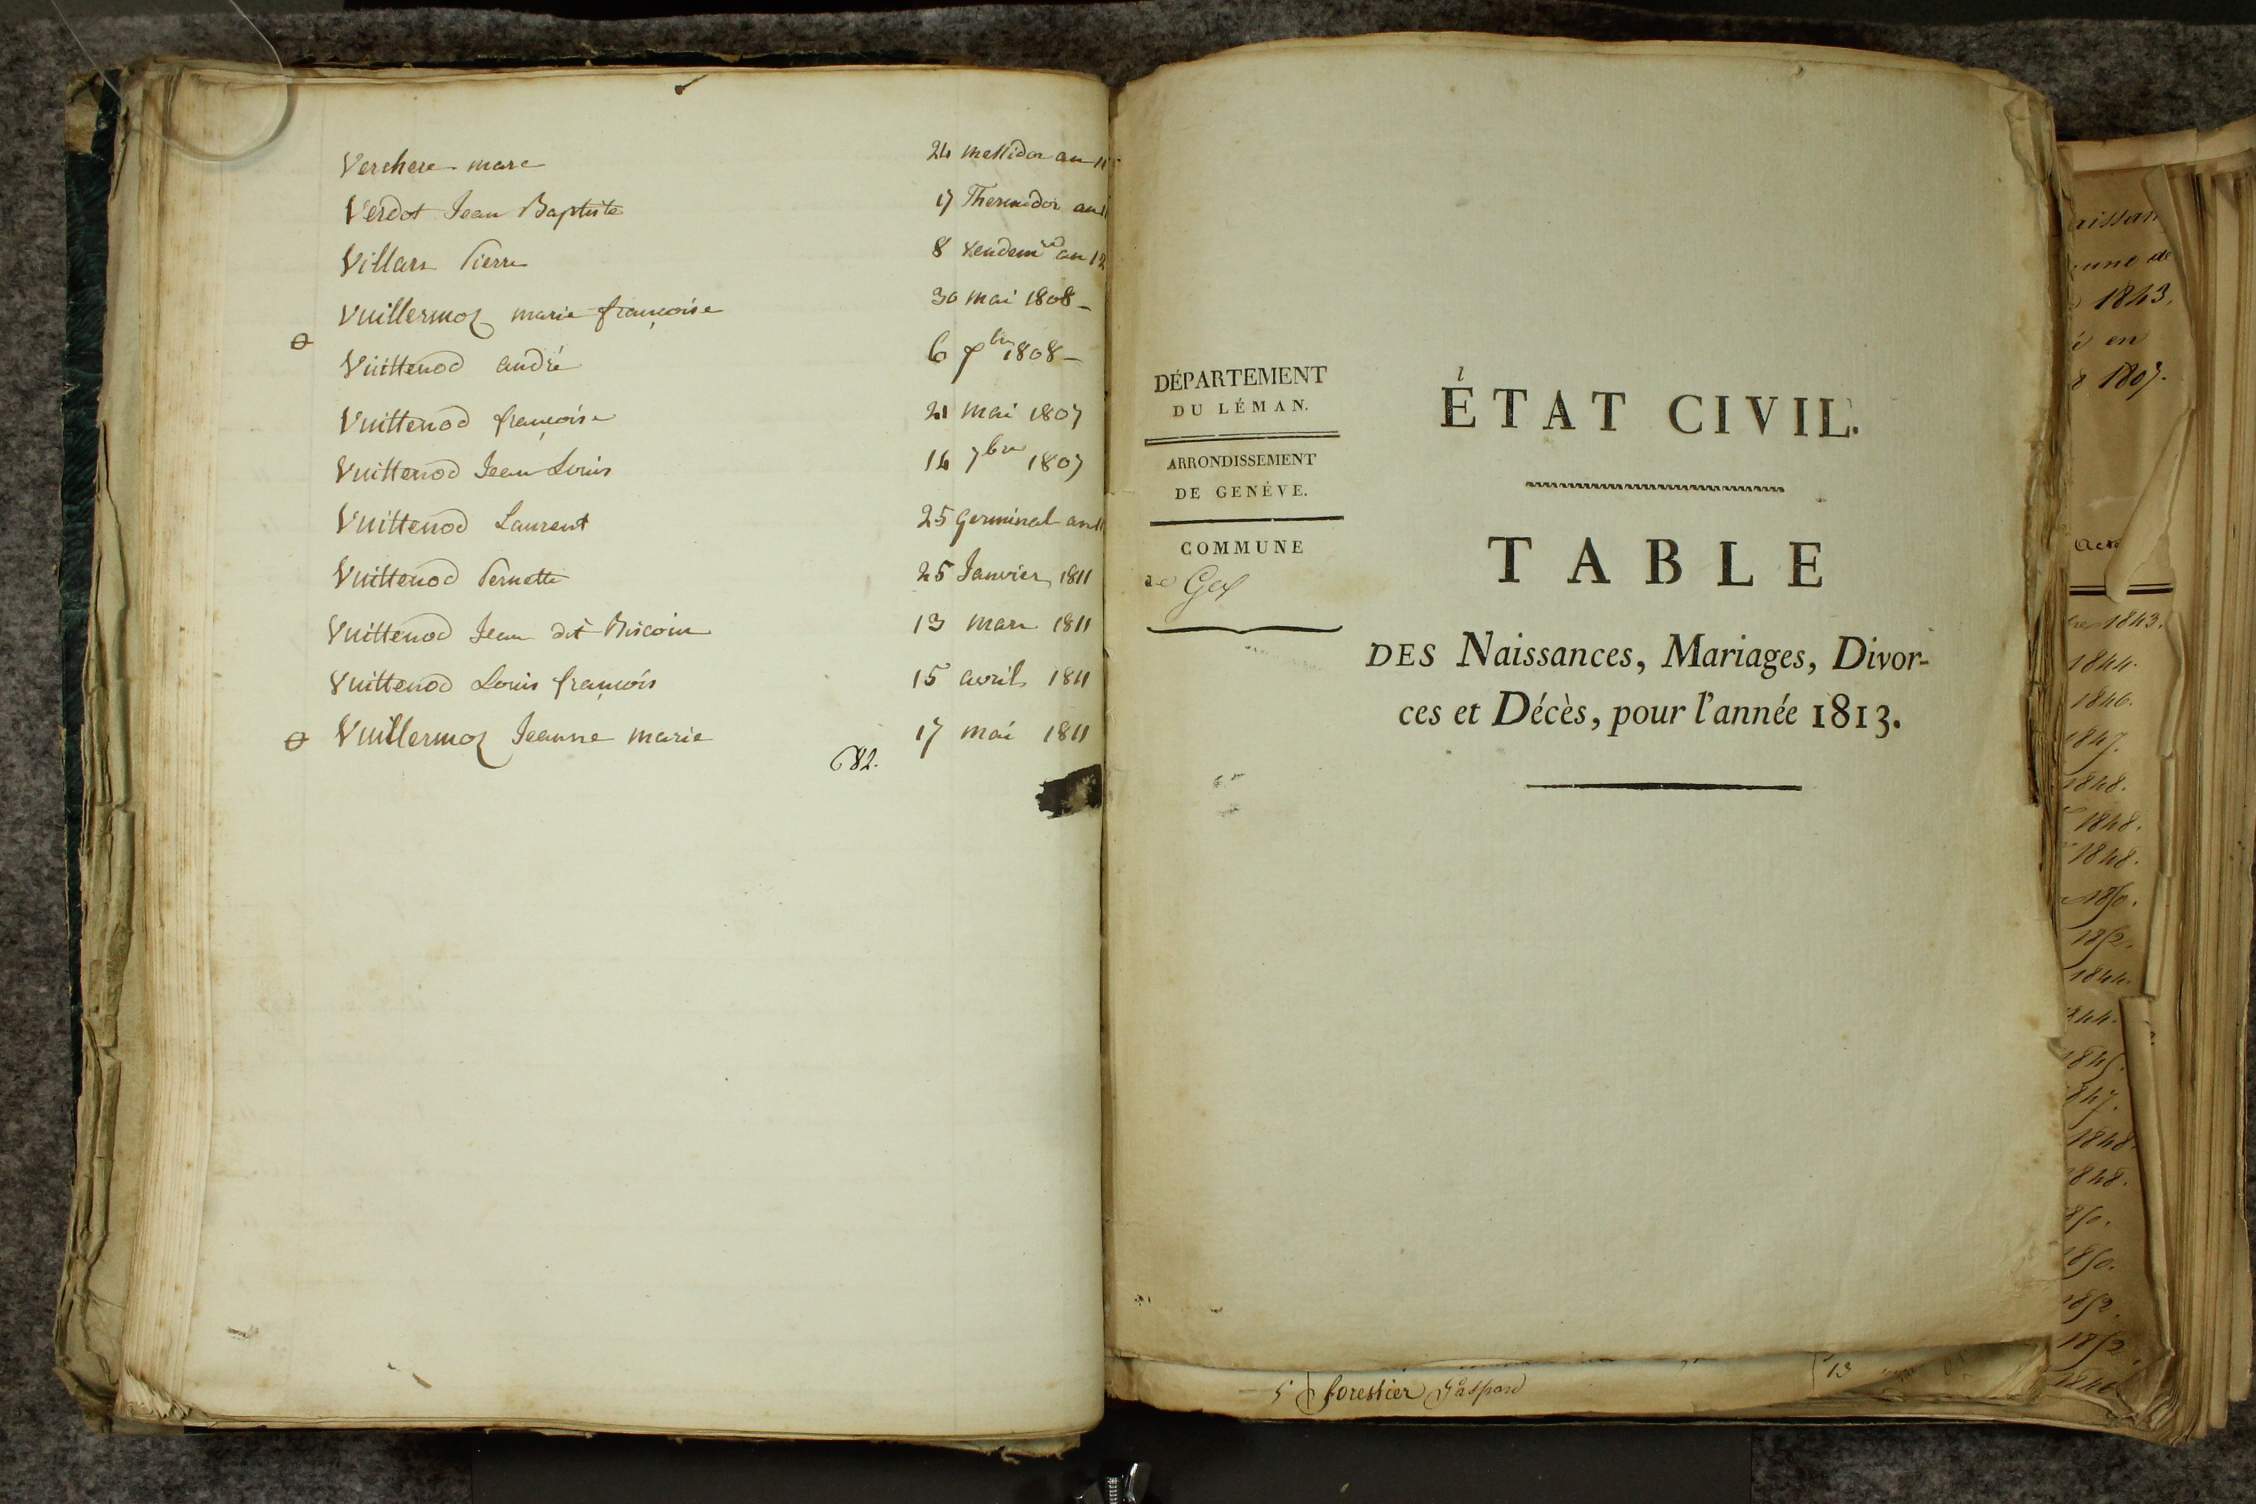 Verchere marc 24 messidor an 11
Verdot Jean Baptiste 17 Thermidor an 11
Villars Pierre 8 vendemre an 12
Vuillermoz marie françoise 30 mai 1808 -
Vuittenod andré 6 1808 -
Vuittenod françoise 21 mai 1807
Vuittenod Jean Louis 14 7bre 1807
Vuittenod Laurent 25 germinal an 11
Vuittenod Pernette 25 Janvier 1811
Vuittenod Jean dit 13 mars 1811
Vuittenod Louis françois 15 avril 1811
Vuillermoz Jeanne marie 17 mai 1811
682.
DÉPARTEMENT
DU LÉMAN.
ARRONDISSEMENT
DE GENÉVE.
COMMUNE
de Gex
ÉTAT CIVIL.
TABLE
DES Naissances, Mariages, Divor-
ces et Décès, pour l'année 1813.
5 forestier Gaspard 13
1843,
en
1807.
1843.
1844.
1846.
1847.
1848.
1848.
1848.
1850.
1852.
1844.
1848.
1848.
1850.
1852.
1852